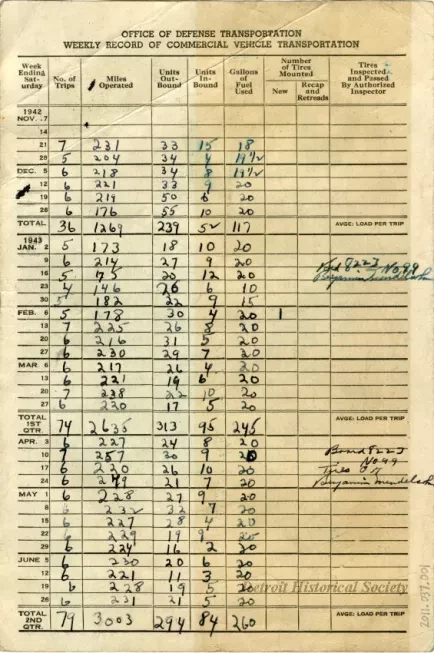 OFFICE OF DEFENSE TRANSPORTATION
WEEKLY RECORD OF COMMERCIAL VEHICLE TRANSPORTATION
Week Ending Saturday No. of Trips Miles Operated Units Out-Bound Units In-Bound Gallons of Fuel Used Number of Tires Mounted New Recap and Retreads Tires Inspected and Passed By Authorized Inspector
1942
NOV. 7
14
21 7 231 33 15 18
28 5 204 34 4 19½
DEC. 5 6 218 34 8 19½
12 6 221 33 9 20
19 6 219 50 6 20
26 6 176 55 10 20
TOTAL 36 1269 239 52 117 AVGE: LOAD PER TRIP
1943
JAN. 2 5 173 18 10 20
9 6 214 27 9 20
16 5 175 20 12 20 8223 No 99
23 4 146 26 6 10 Benjamin Mendelsohn
30 5 182 22 9 15
FEB. 6 5 178 30 4 20 1
13 7 225 26 8 20
20 6 216 31 5 20
27 6 230 29 7 20
MAR. 6 6 217 26 4 20
13 6 221 19 6 20
20 7 238 22 10 20
27 6 220 17 5 20
TOTAL 1ST QTR. 74 2635 313 95 245 AVGE: LOAD PER TRIP
APR. 3 6 227 24 8 20
10 7 257 30 9 20 Board 8223
17 6 220 26 10 20 No 99
Tires
24 6 21 7 20 Benjamin Mendelsohn
MAY 1 6 228 27 9 20
8 6 232 32 7 20
15 6 227 28 4 20
22 6 229 19 9 20
29 6 224 16 2 20
JUNE 5 6 230 20 6 20
12 6 221 11 3 20
19 6 228 19 5 20
26 6 231 21 5 20
TOTAL 2ND QTR. 79 3003 294 84 260 AVGE: LOAD PER TRIP
Detroit Historical Society
2011.037.001